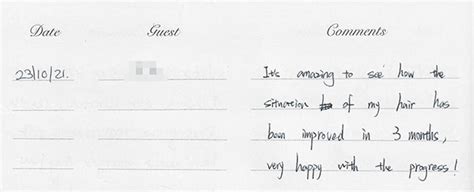 Date Guest Comments
23/10/21. It's amazing to see how the
situation of my hair has
been improved in 3 months,
very happy with the progress!